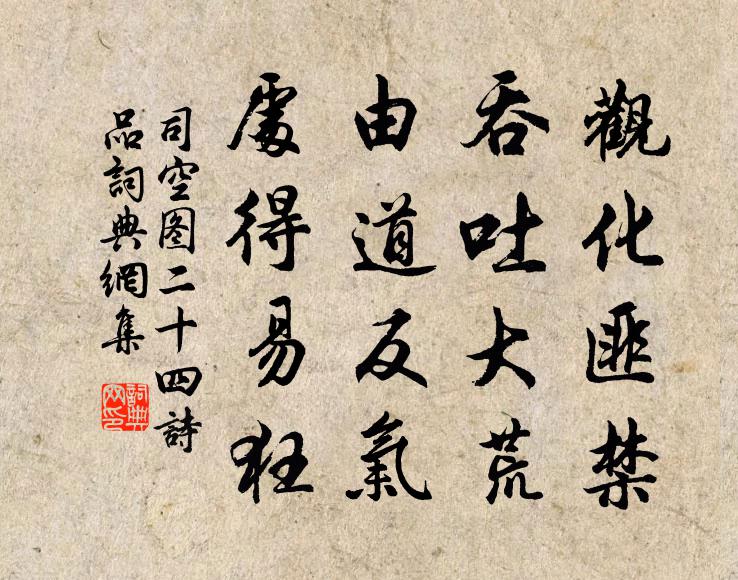 觀化匪禁
吞吐大荒
由道反氣
處得易狂
司空图二十四詩
品詞典網集
詞典
网印